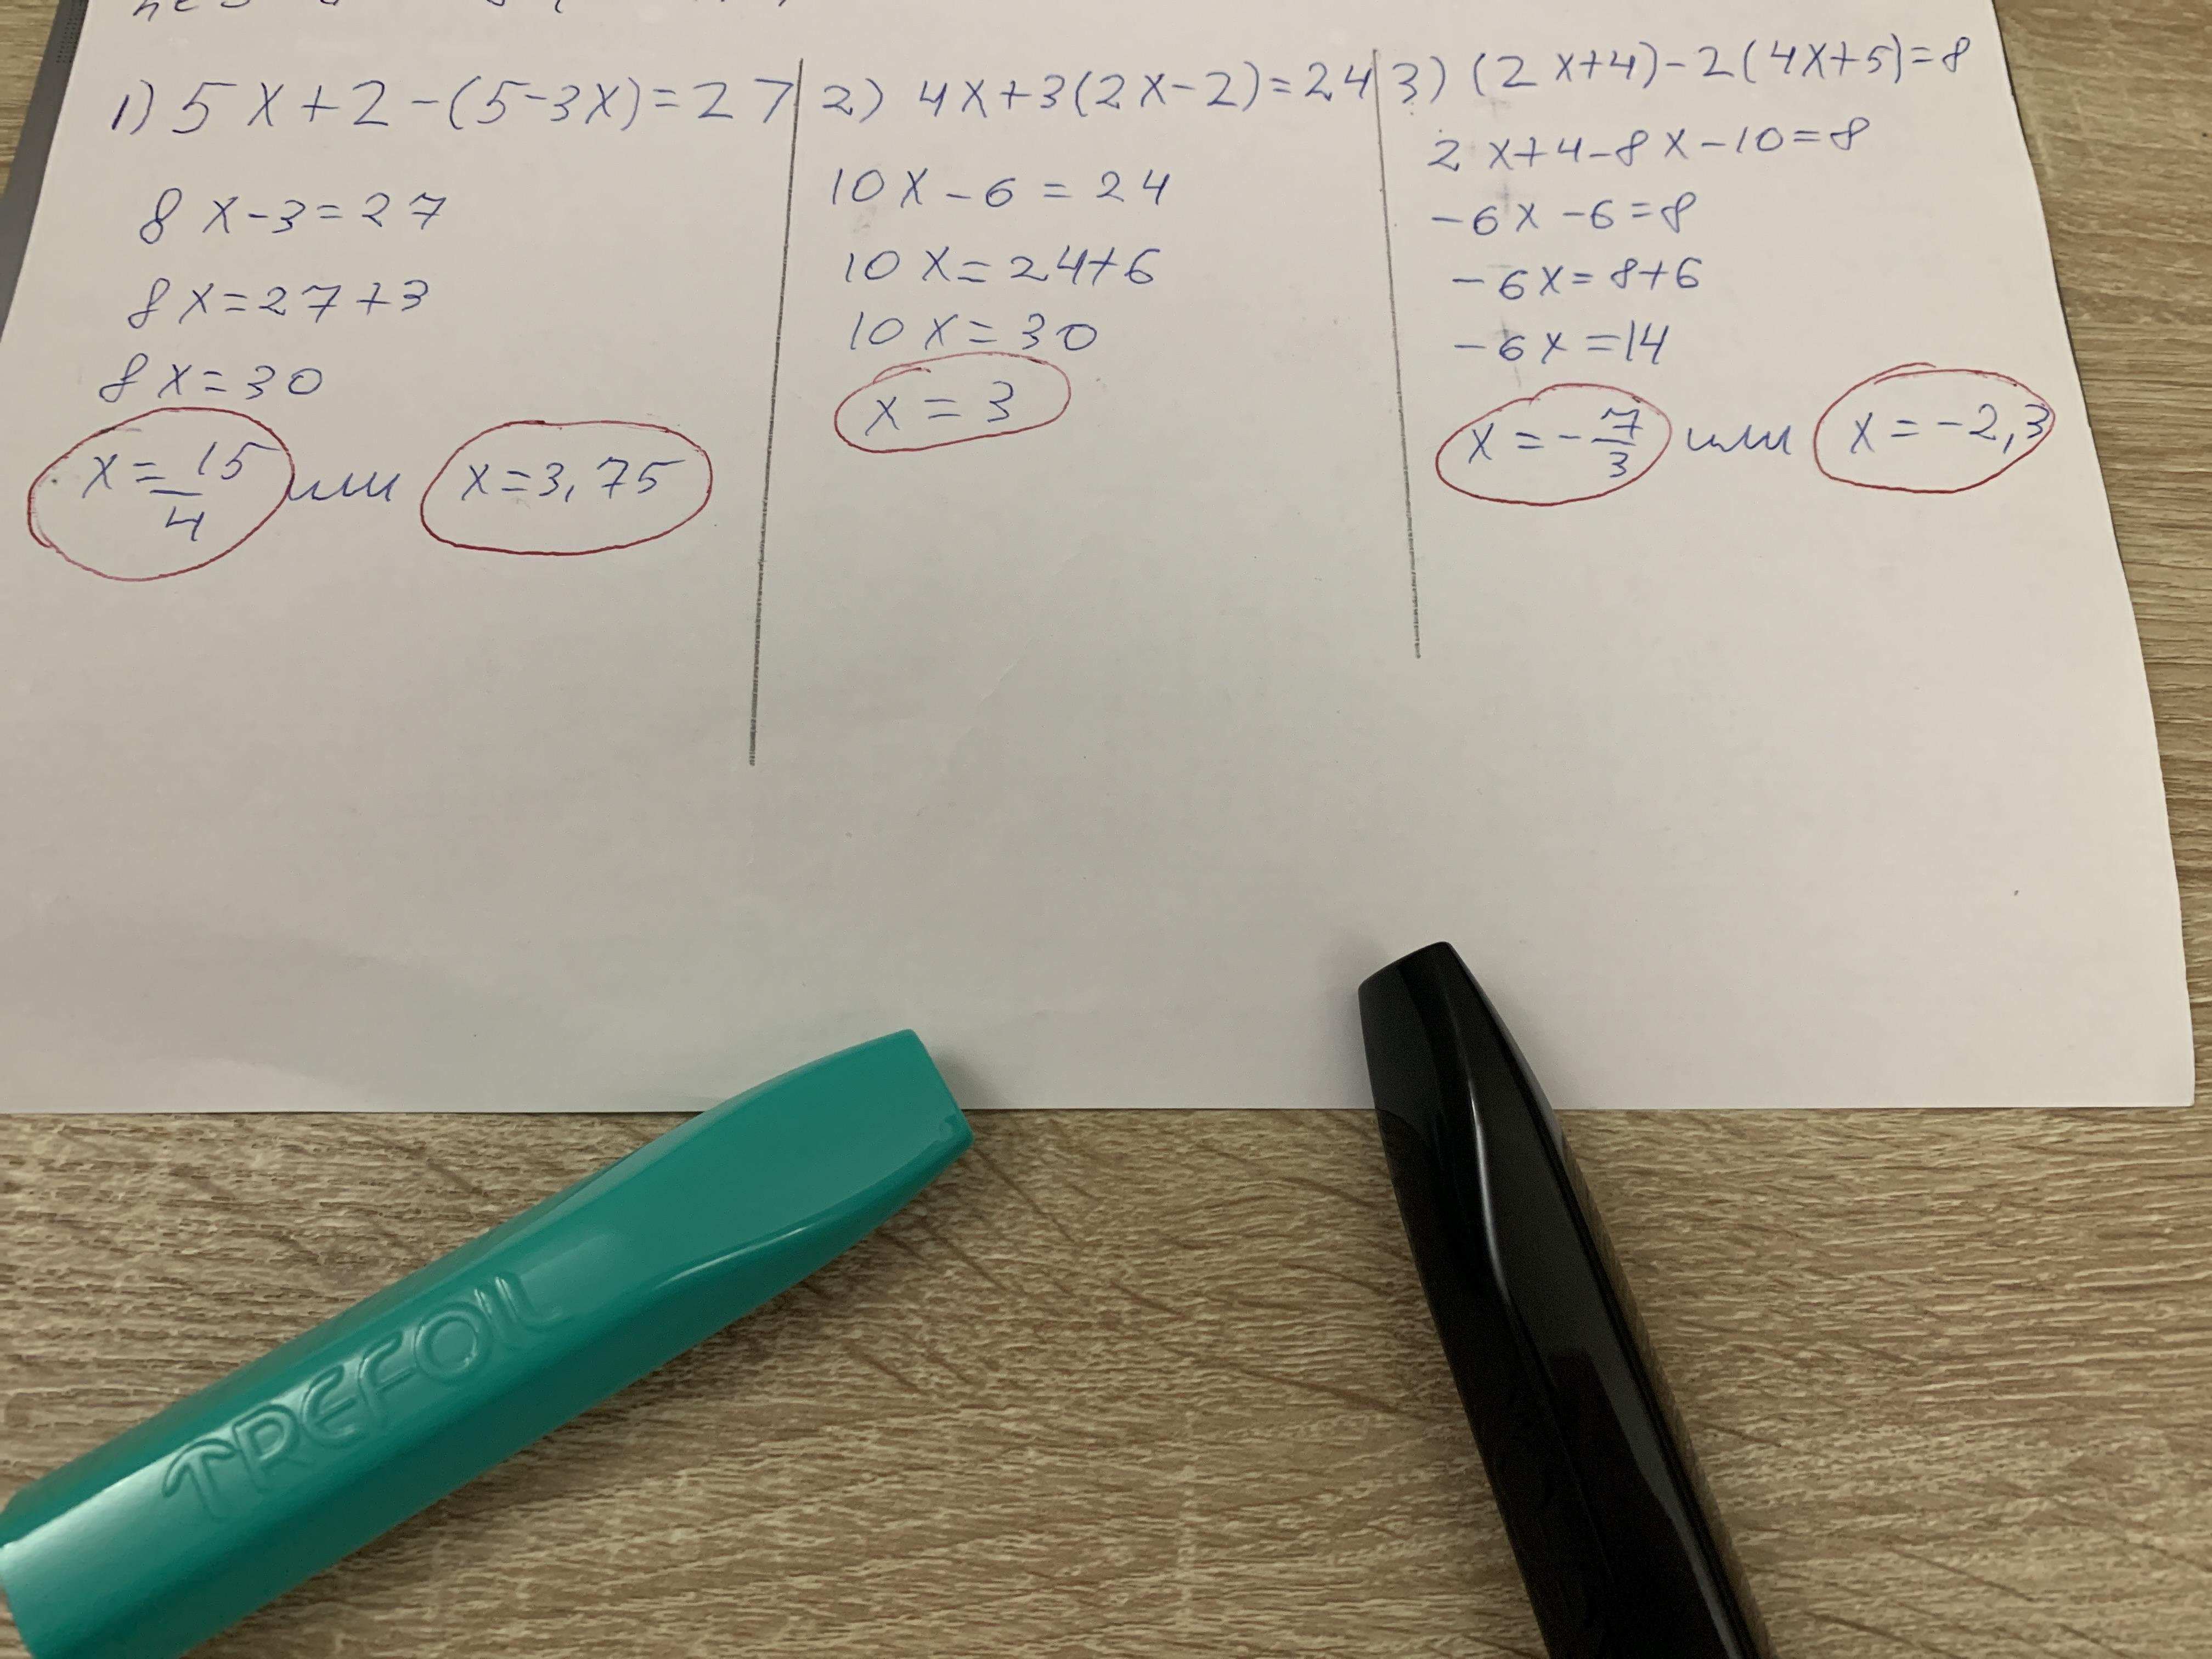 1) 5x+2-(5-3x)=27
8x-3=27
8x=27+3
8x=30
x=15/4 или x=3,75
2) 4x+3(2x-2)=24
10x-6=24
10x=24+6
10x=30
x=3
3) (2x+4)-2(4x+5)=8
2x+4-8x-10=8
-6x-6=8
-6x=8+6
-6x=14
x=-7/3 или x=-2,3
TREFOIL